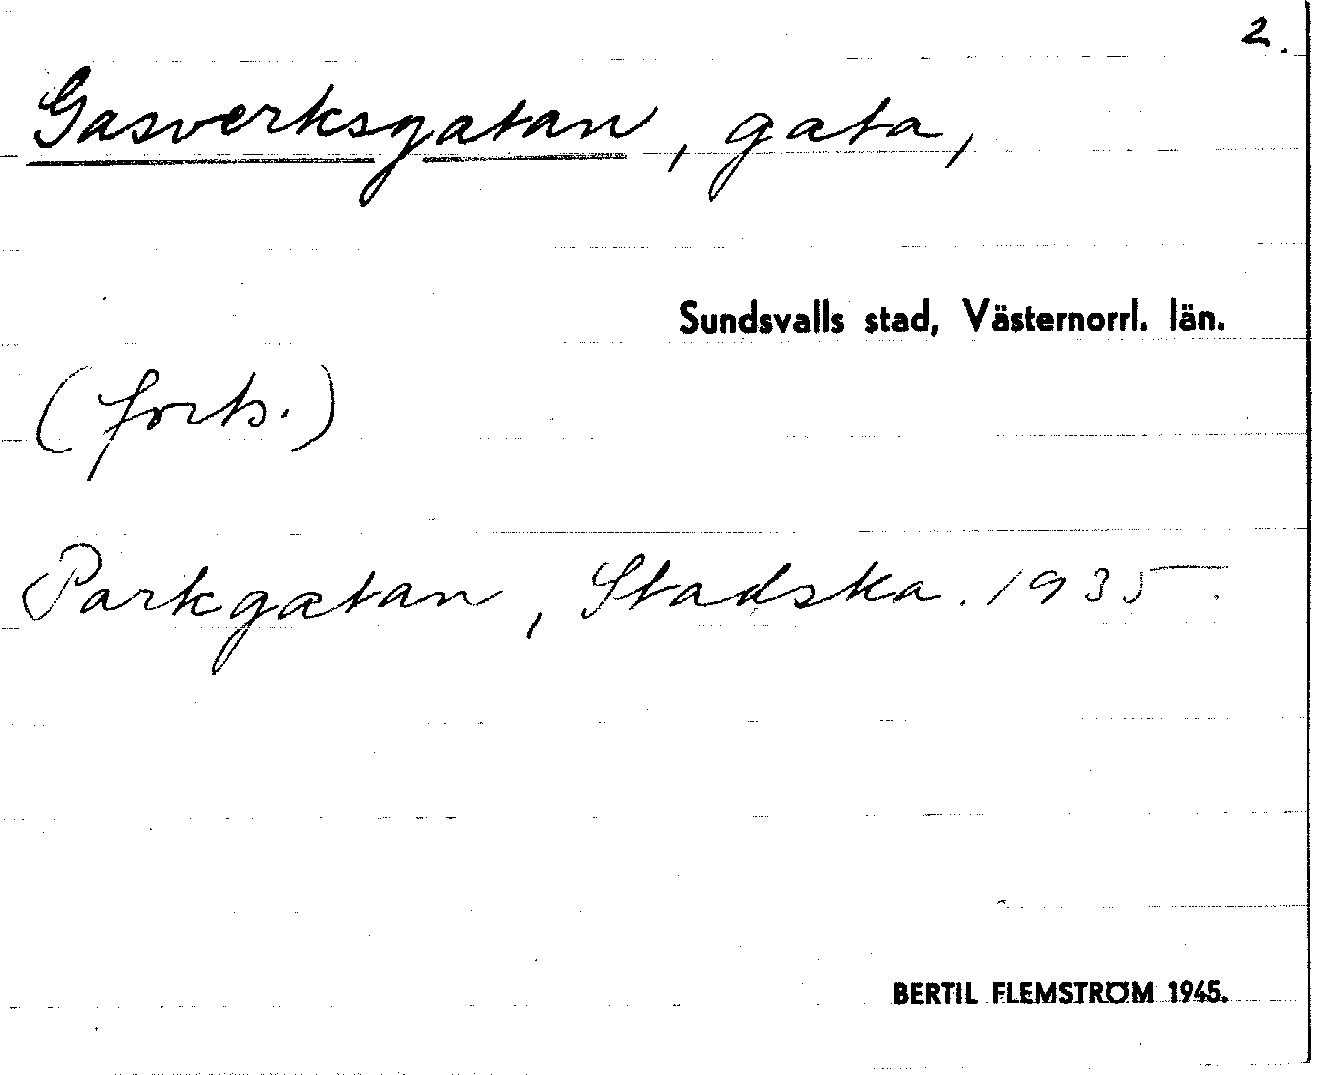 2.
Gasverksgatan, gata,
Sundsvalls stad, Västernorrl. län.
(forts.)
Parkgatan, Stadska. 1935.
BERTIL FLEMSTRÖM 1945.